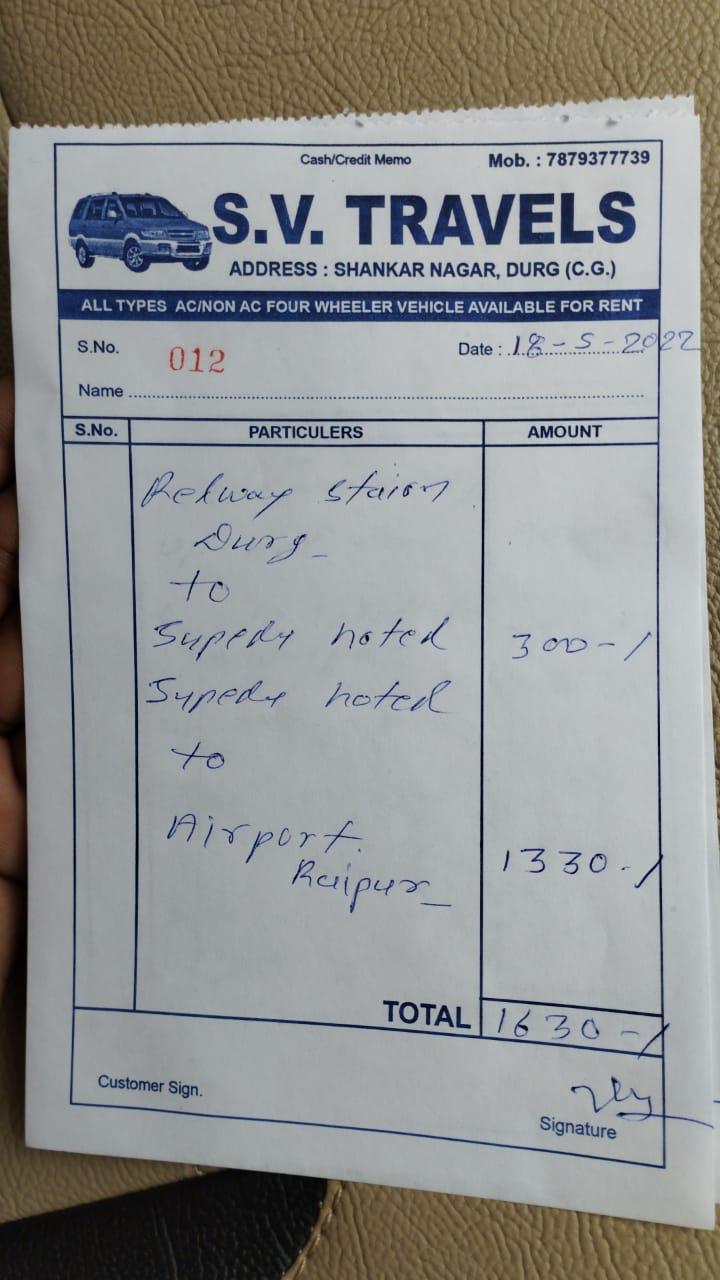 Cash/Credit Memo Mob. : 7879377739
S.V. TRAVELS
ADDRESS : SHANKAR NAGAR, DURG (C.G.)
ALL TYPES AC/NON AC FOUR WHEELER VEHICLE AVAILABLE FOR RENT
S.No. 012 Date : 18-5-2022
Name
S.No. PARTICULERS AMOUNT
Relway staion
Durg
to
Supedy hoted 300-/
Supedy hoted
to
Airport.
Raipur 1330-/
TOTAL 1630-/
Customer Sign.
Signature